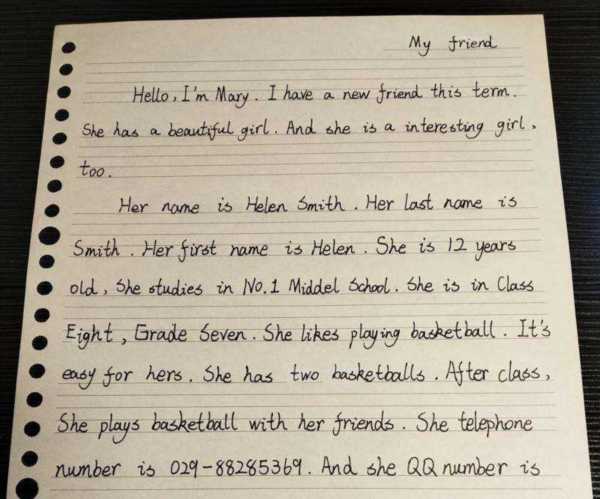 My friend
Hello, I'm Mary. I have a new friend this term.
She has a beautiful girl. And she is a interesting girl,
too.
Her name is Helen Smith. Her last name is
Smith. Her first name is Helen. She is 12 years
old, She studies in No.1 Middel School. She is in Class
Eight, Grade Seven. She likes playing basketball. It's
easy for hers. She has two basketballs. After class,
She plays basketball with her friends. She telephone
number is 029-88285369. And she QQ number is